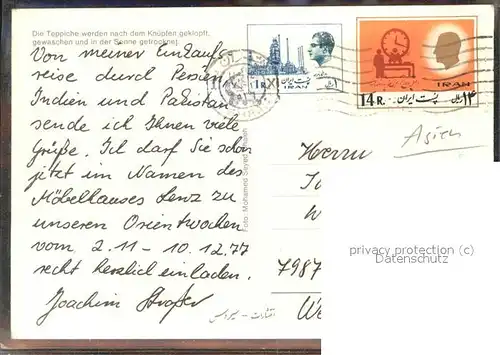 Die Teppiche werden nach dem Knüpfen geklopft,
gewaschen und in der Sonne getrocknet.
Von meiner Einkaufs
reise durch Persien
Indien und Pakistan
sende ich Ihnen viele
Grüße. Ich darf Sie schon
jetzt im Namen des
Möbelhauses Lenz zu
unseren Orientwochen
vom 2.11 - 10.12.77
recht herzlich einladen.
Joachim
Foto: Mohamed
پست ایران
1 R.
IRAN
IRAN
14 R.
پست ایران
۱۴ ریال
Asien
Herrn
7987
We
privacy protection (c)
Datenschutz